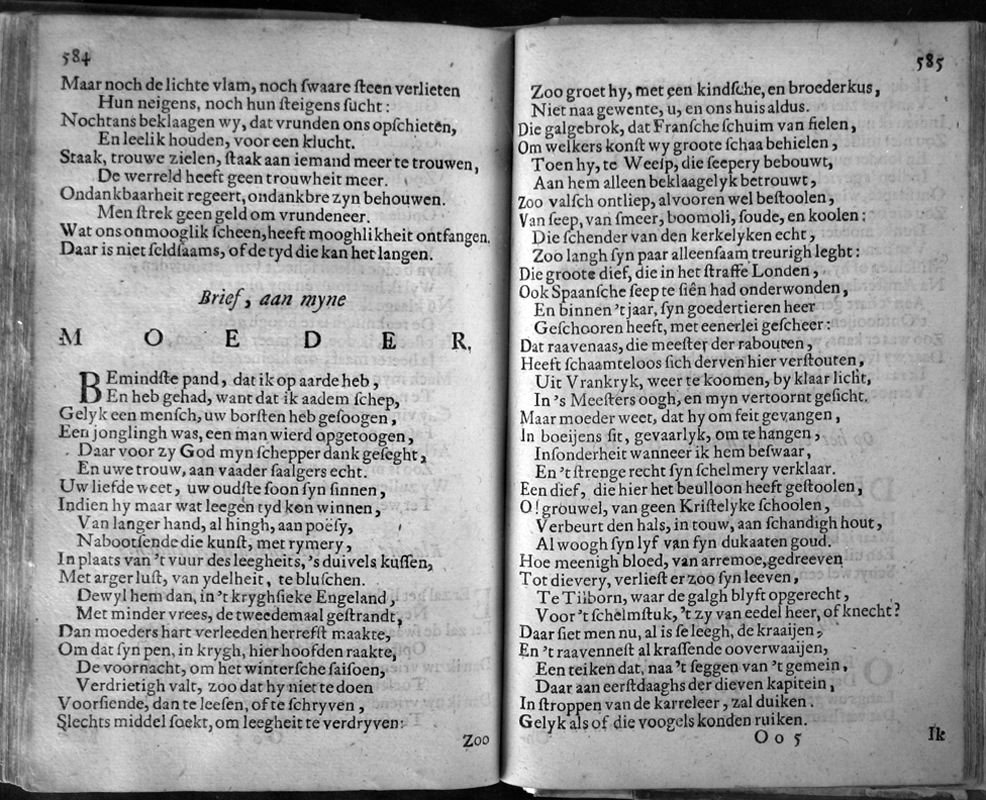 584
Maar noch de lichte vlam, noch ſwaare ſteen verlieten
Hun neigens, noch hun ſteigens ſucht:
Nochtans beklaagen wy, dat vrunden ons opſchieten,
En leelik houden, voor een klucht.
Staak, trouwe zielen, ſtaak aan iemand meer te trouwen,
De werreld heeft geen trouwheit meer.
Ondankbaarheit regeert, ondankbre zyn behouwen.
Men ſtrek geen geld om vrundeneer.
Wat ons onmooglik ſcheen, heeft mooghlikheit ontfangen.
Daar is niet ſeldſaams, of de tyd die kan het langen.
Brief, aan myne
MOEDER.
BEmindſte pand, dat ik op aarde heb,
En heb gehad, want dat ik aadem ſchep,
Gelyk een menſch, uw borſten heb geſoogen,
Een jonglingh was, een man wierd opgetoogen,
Daar voor zy God myn ſchepper dank geſeght,
En uwe trouw, aan vaader ſaalgers echt.
Uw liefde weet, uw oudſte ſoon ſyn ſinnen,
Indien hy maar wat leegen tyd kon winnen,
Van langer hand, al hingh, aan poëſy,
Nabootſende die kunſt, met rymery,
In plaats van 't vuur des leegheits, 's duivels kuſſen,
Met arger luſt, van ydelheit, te bluſchen.
Dewyl hem dan, in 't kryghſieke Engeland,
Met minder vrees, de tweedemaal geſtrandt,
Dan moeders hart verleeden herrefſt maakte,
Om dat ſyn pen, in krygh, hier hoofden raakte,
De voornacht, om het winterſche ſaiſoen,
Verdrietigh valt, zoo dat hy niet te doen
Voorſiende, dan te leeſen, of te ſchryven,
Slechts middel ſoekt, om leegheit te verdryven:
Zoo
585
Zoo groet hy, met een kindſche, en broederkus,
Niet naa gewente, u, en ons huis aldus.
Die galgebrok, dat Franſche ſchuim van fielen,
Om welkers konſt wy groote ſchaa behielen,
Toen hy, te Weeſp, die ſeepery bebouwt,
Aan hem alleen beklaagelyk betrouwt,
Zoo valſch ontliep, alvooren wel beſtoolen,
Van ſeep, van ſmeer, boomoli, ſoude, en koolen:
Die ſchender van den kerkelyken echt,
Zoo langh ſyn paar alleenſaam treurigh leght:
Die groote dief, die in het ſtraffe Londen,
Ook Spaanſche ſeep te ſiên had onderwonden,
En binnen 't jaar, ſyn goedertieren heer
Geſchooren heeft, met eenerlei geſcheer:
Dat raavenaas, die meeſter der rabouten,
Heeft ſchaamteloos ſich derven hier verſtouten,
Uit Vrankryk, weer te koomen, by klaar licht,
In 's Meeſters oogh, en myn vertoornt geſicht.
Maar moeder weet, dat hy om feit gevangen,
In boeijens ſit, gevaarlyk, om te hangen,
Inſonderheit wanneer ik hem beſwaar,
En 't ſtrenge recht ſyn ſchelmery verklaar.
Een dief, die hier het beulloon heeft geſtoolen,
O! grouwel, van geen Kriſtelyke ſchoolen,
Verbeurt den hals, in touw, aan ſchandigh hout,
Al woogh ſyn lyf van ſyn dukaaten goud.
Hoe meenigh bloed, van arremoe, gedreeven
Tot dievery, verlieſt er zoo ſyn leeven,
Te Tilborn, waar de galgh blyft opgerecht,
Voor 't ſchelmſtuk, 't zy van eedel heer, of knecht?
Daar ſiet men nu, al is ſe leegh, de kraaijen,
En 't raavenneſt al kraſſende ooverwaaijen,
Een teiken dat, naa 't ſeggen van 't gemein,
Daar aan eerſtdaaghs der dieven kapitein,
In ſtroppen van de karreleer, zal duiken.
Gelyk als of die voogels konden ruiken.
Oo 5
Ik